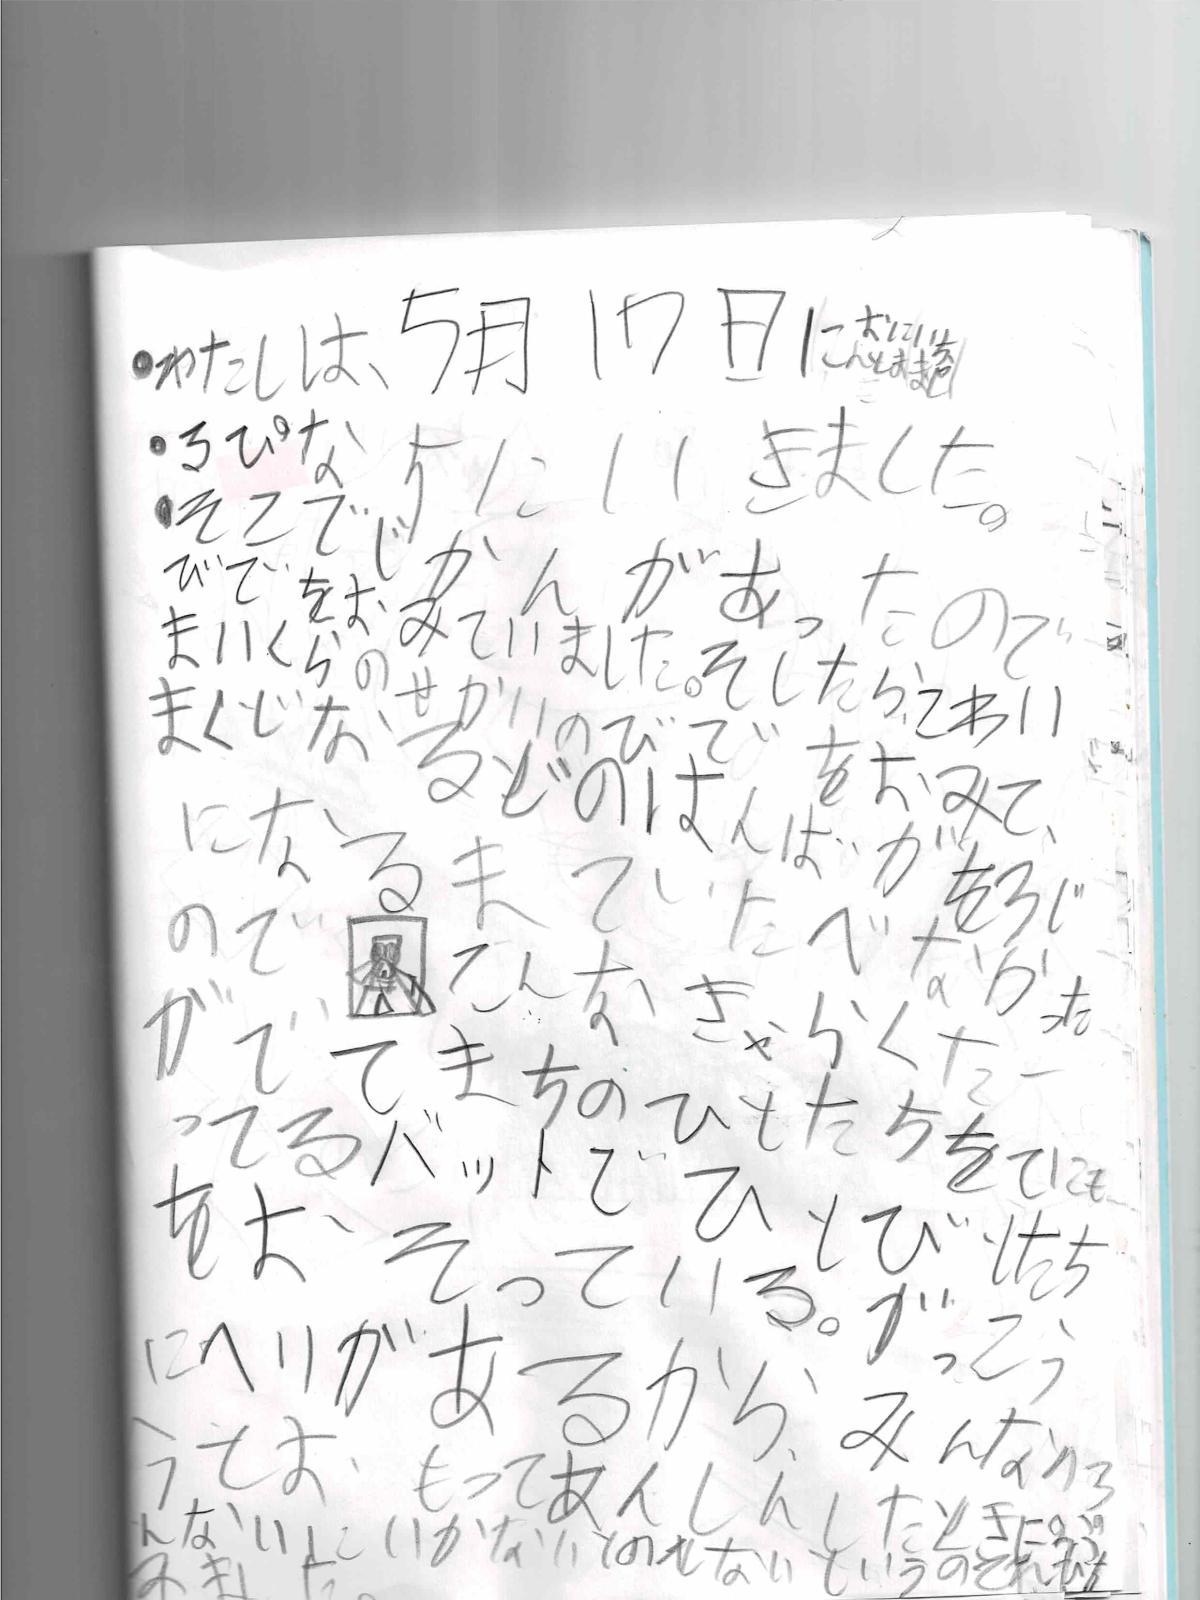 ●わたしは、5月17日に おにいち
こんとままと
●るぴなすにいきました。
●そこでじかんがあったので
びでをお みていました。そしたら、こわい
まいくらのせかいのびでをおみて、
まくじなるどのはんばがをろじ
になるまていたべなかった
のでこんなきゃらくたー
がでてきまちのひとたちをてにも
ってるバットでひとびとたち
をおそっている。がっこう
にへりがあるから、みんなのろ
うとお、もってあんしんしたときに
んないにいかないとのせないというのそれも
みました。